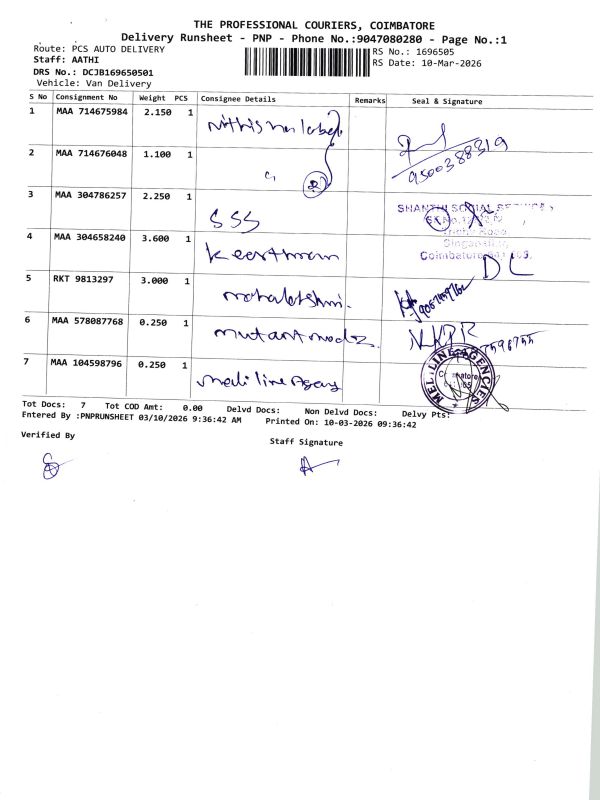 THE PROFESSIONAL COURIERS, COIMBATORE
Delivery Runsheet - PNP - Phone No.:9047080280 - Page No.:1
Route: PCS AUTO DELIVERY
RS No.: 1696505
Staff: AATHI
RS Date: 10-Mar-2026
DRS No.: DCJB169650501
Vehicle: Van Delivery
S No Consignment No Weight PCS Consignee Details Remarks Seal & Signature
1 MAA 714675984 2.150 1
9500388319
2 MAA 714676048 1.100 1
3 MAA 304786257 2.250 1 SSS
SHANTHI SOCIAL SERVICES
4 MAA 304658240 3.600 1 Keerthman
Singanallur,
Coimbatore
DC
5 RKT 9813297 3.000 1 mahalakshmi.
6 MAA 578087768 0.250 1 mutantmodz
7 MAA 104598796 0.250 1 medi line Agency
MEDLINE AGENCIES
Tot Docs: 7 Tot COD Amt: 0.00 Delvd Docs: Non Delvd Docs: Delvy Pts:
Entered By :PNPRUNSHEET 03/10/2026 9:36:42 AM Printed On: 10-03-2026 09:36:42
Verified By
Staff Signature